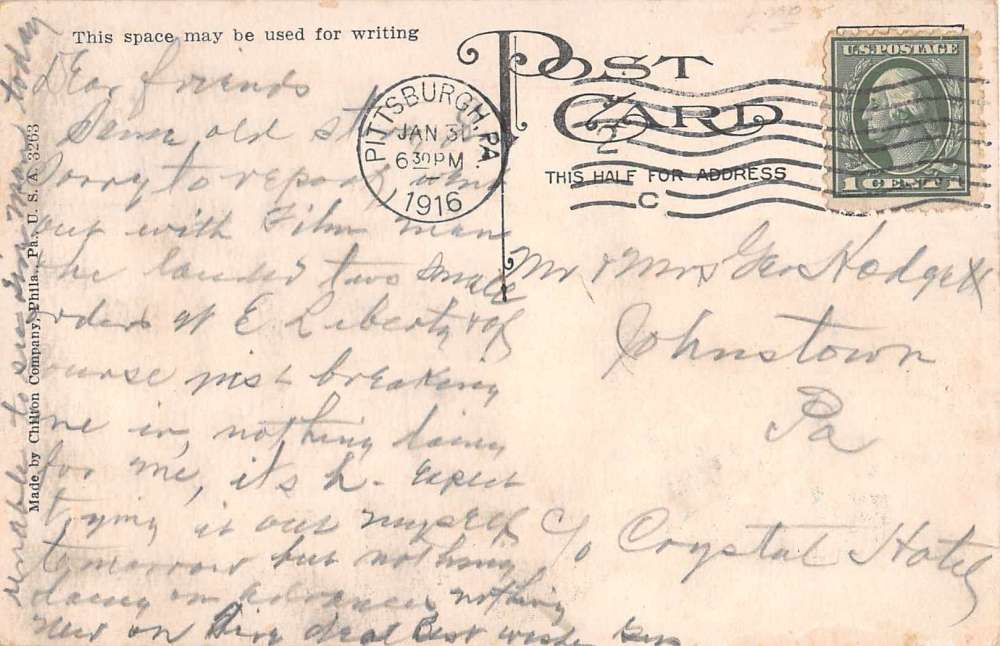 This space may be used for writing
POST CARD
THIS HALF FOR ADDRESS
U.S. POSTAGE
1 CENT 1
PITTSBURGH, PA.
JAN 31
6 30 PM
1916
2
C
Made by Chilton Company, Phila., Pa., U. S. A. 3263
Dear friends
Same old story
Sorry to report
out with Film man
he landed two small
orders at E Liberty & of
course just breaking
me in, nothing doing
for me, its h- Expect
trying it out myself
tomorrow but nothing
doing on advances nothing
new on deal Best wishes
unable to see man today
Mr & Mrs Geo Hodge
Johnstown
Pa
c/o Crystal Hotel